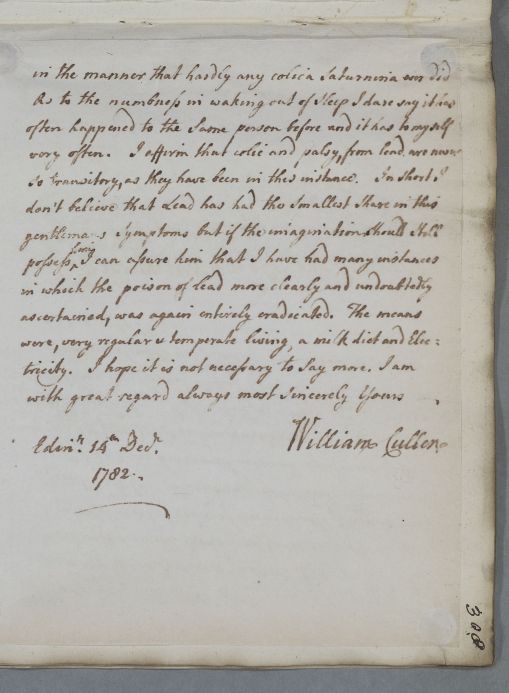 in the manner that hardly any colica Saturnina ever did
As to the numbness in waking out of Sleep I dare say it has
often happened to the Same person before and it has to myself
very often. I affirm that colic and palsy, from lead are never
So transitory, as they have been in this instance. In Short I
don't believe that Lead has had the Smallest Share in this
gentleman's Symptoms but if the imagination should Still
possess him, I can assure him that I have had many instances
in which the poison of Lead more clearly and undoubtedly
ascertained, was again entirely eradicated. The means
were, very regular & temperate living, a milk diet and Elec:
tricity. I hope it is not necessary to Say more. I am
with great regard always most Sincerely Yours
William Cullen
Edinr. 14th Decr.
1782.
308